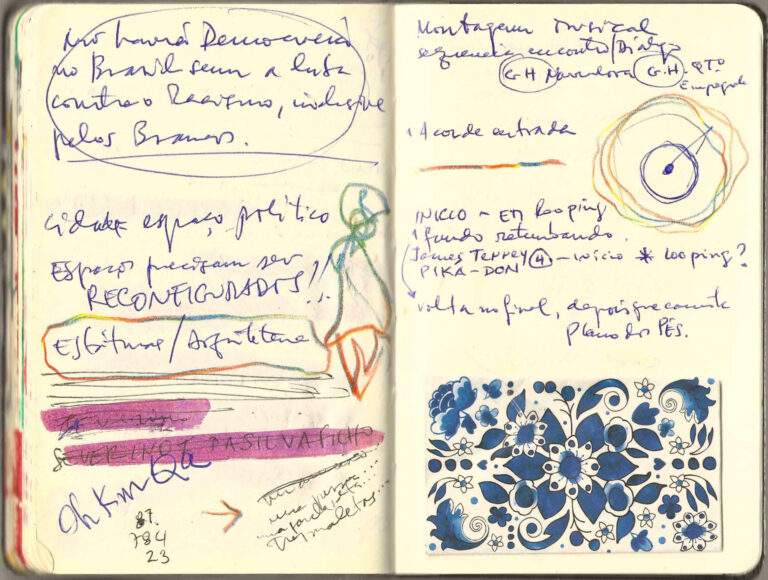 Não haverá Democracia
no Brasil sem a luta
contra o Racismo, inclusive
pelos Brancos.
cidade espaço político
Espaços precisam ser
RECONFIGURADOS!!
Estátuas / Arquitetura
SEVERINO DASILVA FILHO
87.
784
23
Montagem Musical
sequencia encontro/Diálogo
G.H Navulora G.H. QTO
Empregada
1 Acorde entrada
INICIO - EM looping
1 fundo retumbando.
James Terrey 4 - início * looping?
PIKA-DON
volta no final, depois que comenta
Plano dos PÉS.